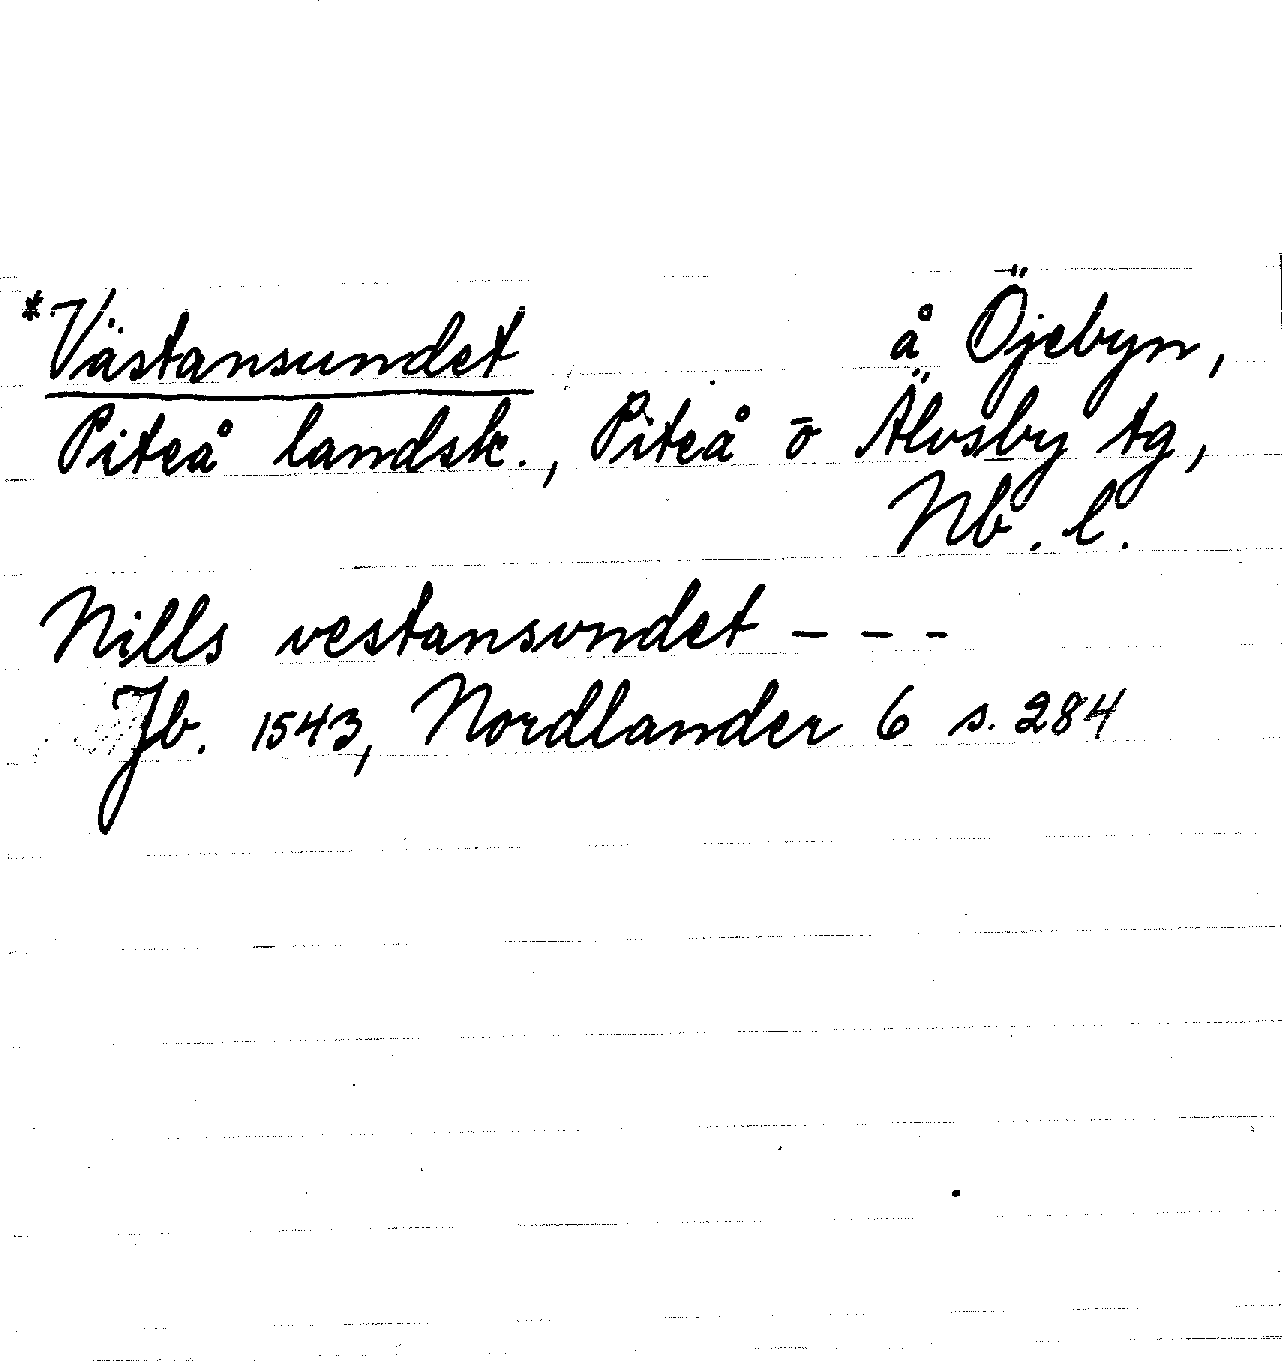 *Västansundet å Öjebyn,
Piteå landsk., Piteå o Älvsby tg,
Nb. l.
Nills vestansvndet - - -
Jb. 1543, Nordlander 6 s. 284